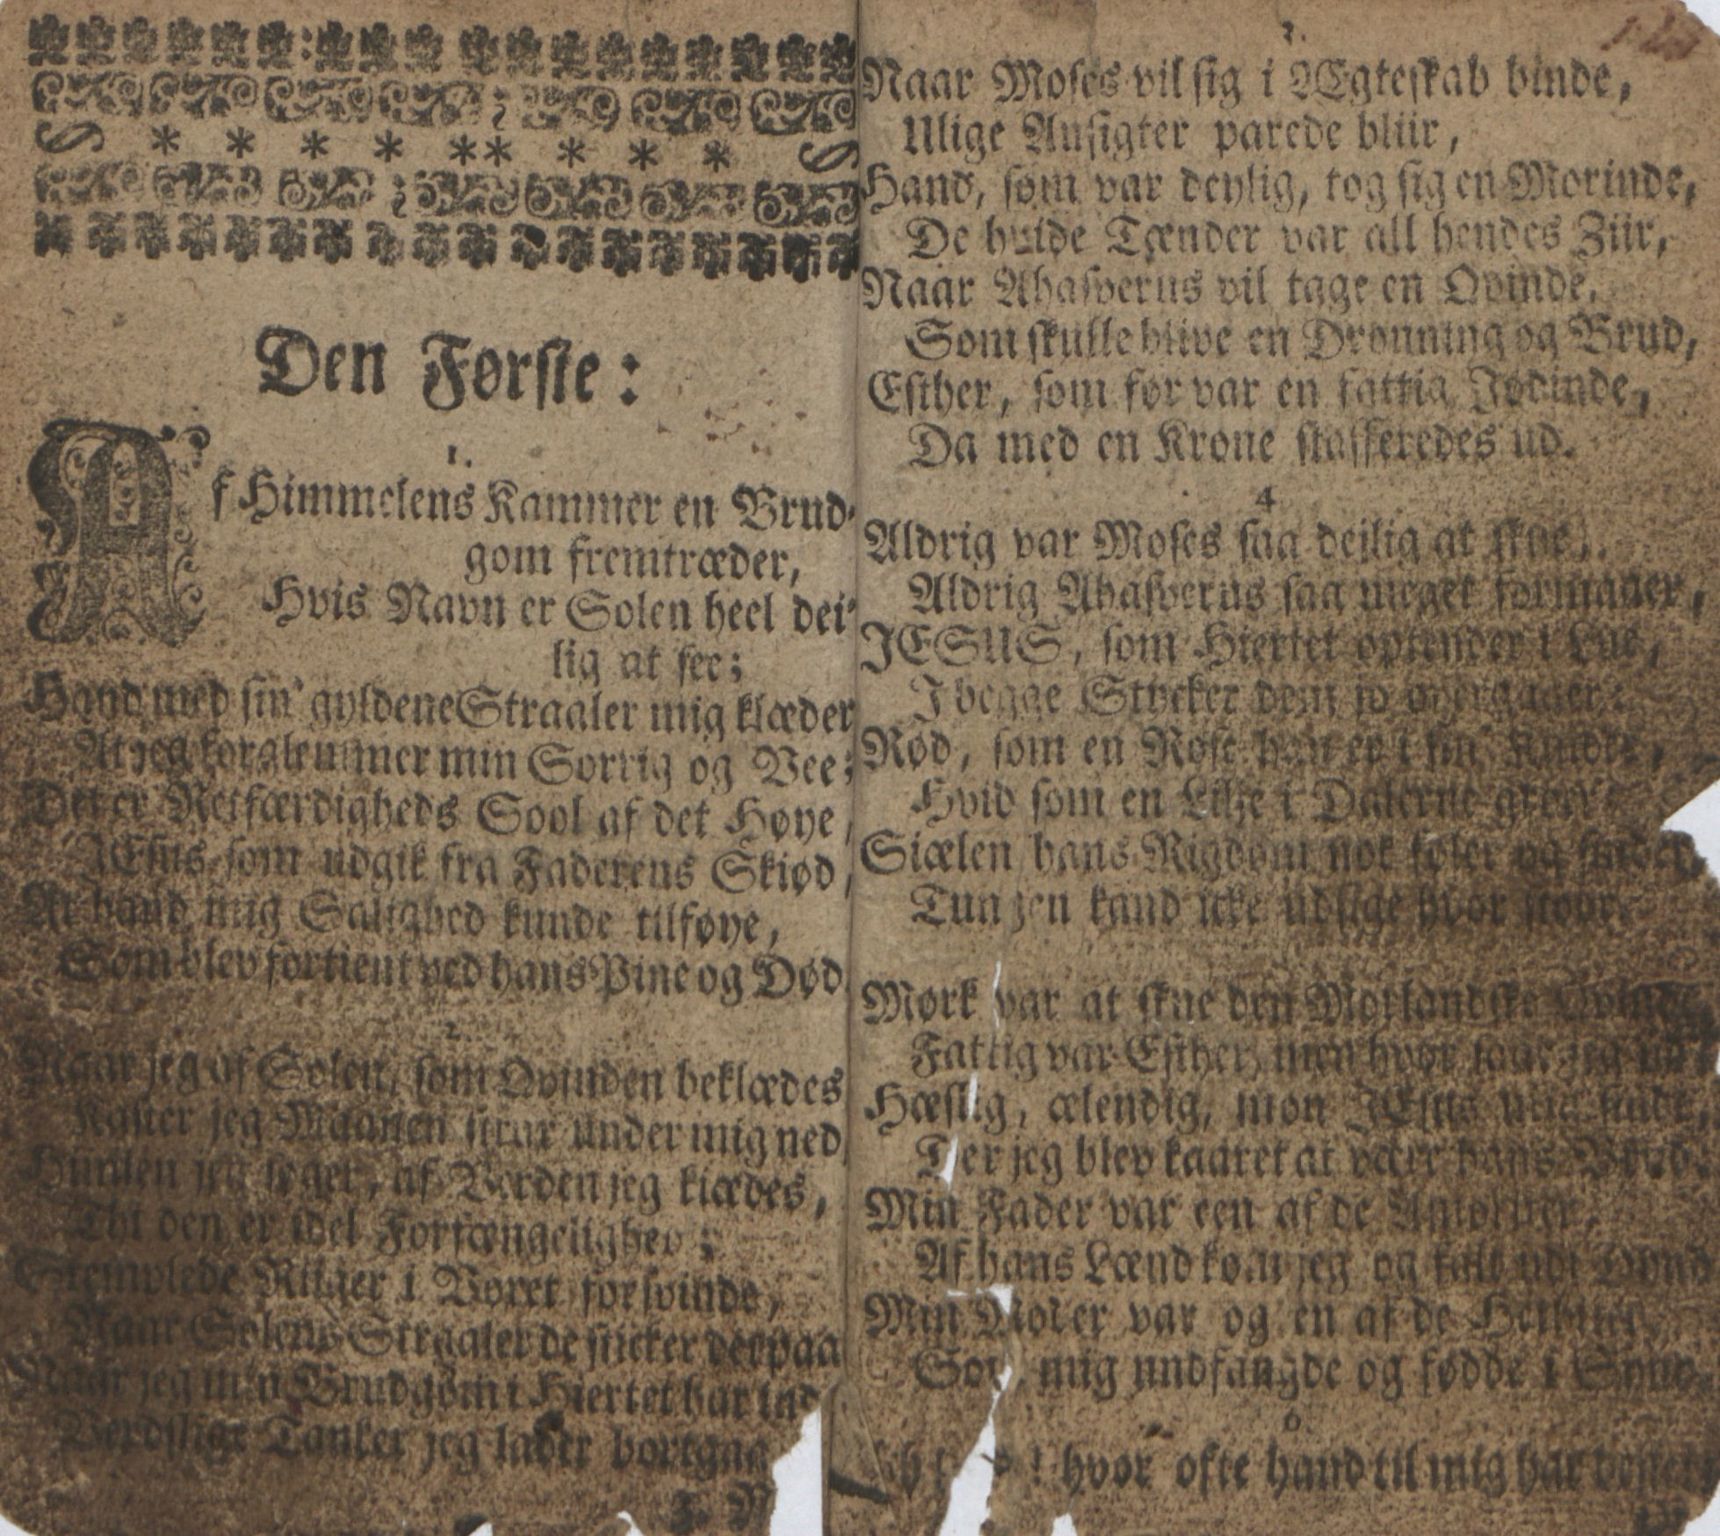 Den Første:
1.
Af Himmelens Kammer en Brud-
gom fremtræder,
Hvis Navn er Solen heel dei-
lig at see;
Hand med sin' gyldene Straaler mig klæder
At jeg forglemmer min Sorrig og Vee;
Det er Retfærdigheds Sool af det Høye,
JEsus som udgik fra Faderens Skiød,
At hand mig Salighed kunde tilføye,
Som blev fortient ved hans Pine og Død
2.
Naar jeg af Solen, som Qvinden beklædes
Kaster jeg Maanen under mig ned
Himlen jeg søger, af Verden jeg kiædes,
Thi den er idel Forfængelighed;
Stemplede Ringer i Voxet forsvinde,
Naar Solens Straaler de sticker derpaa
Naar jeg min Brudgom i Hiertet har ind
Verdslige Tanker jeg lader bortgaa
3. N
3.
Naar Moses vil sig i Ægteskab binde,
Ulige Ansigter parede bliir,
Hand, som var deylig, tog sig en Morinde,
De hvide Tænder var all hendes Ziir,
Naar Ahasverus vil tage en Qvinde,
Som skulle blive en Dronning og Brud,
Esther, som før var en fattig Jødinde,
Da med en Krone stafferedes ud.
4
Aldrig var Moses saa deilig at skue,
Aldrig Ahasverus saa meget formaaer,
JESUS, som Hiertet optender i Lue,
I begge Stycker dem jo overgaaer:
Rød, som en Rose han er i sin' Kinder,
Hvid som en Lilje i Dalerne
Siælen hans Rigdom nok føler og finder,
Tungen kand icke udsige hvor stoor.
Mørk var at skue den Morlandske Qvinde,
Fattig var Esther, men hvor jeg
Hæslig, ælendig, mon JEsus mig finde,
Der jeg blev kaaret at være hans Brud.
Min Fader var een af de Amoriter,
Af hans Lænd kom jeg og udi Dynd
Min Moder var og en af de Hethiter,
Som mig undfangde og fødde i Synd.
6.
hvor ofte hand til mig har